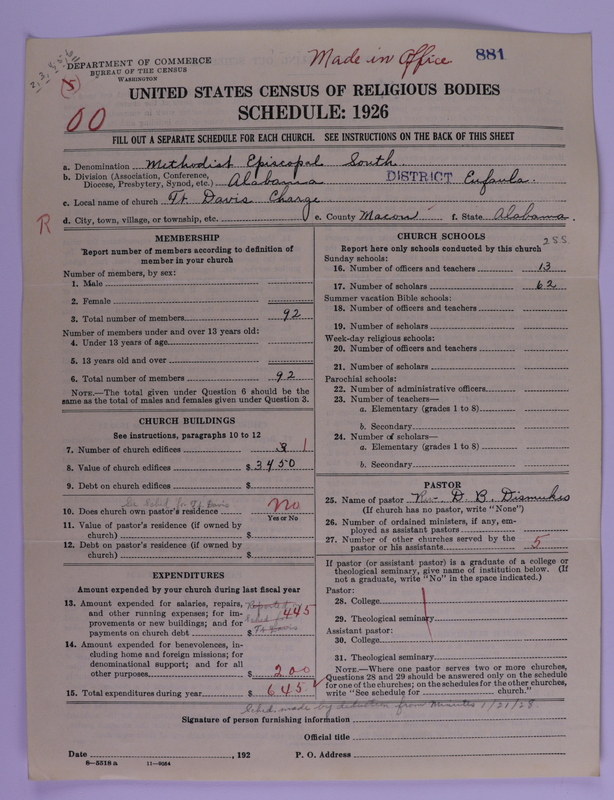 Made in Office 881
DEPARTMENT OF COMMERCE
BUREAU OF THE CENSUS
WASHINGTON
UNITED STATES CENSUS OF RELIGIOUS BODIES
SCHEDULE: 1926
00
FILL OUT A SEPARATE SCHEDULE FOR EACH CHURCH. SEE INSTRUCTIONS ON THE BACK OF THIS SHEET
a. Denomination Methodist Episcopal South
b. Division (Association, Conference,
Diocese, Presbytery, Synod, etc.) Alabama DISTRICT Eufaula.
c. Local name of church Ft. Davis Charge
R
d. City, town, village, or township, etc. e. County Macon f. State Alabama.
MEMBERSHIP
Report number of members according to definition of
member in your church
Number of members, by sex:
1. Male
2. Female
3. Total number of members 92
Number of members under and over 13 years old:
4. Under 13 years of age
5. 13 years old and over
6. Total number of members 92
NOTE.—The total given under Question 6 should be the
same as the total of males and females given under Question 3.
CHURCH BUILDINGS
See instructions, paragraphs 10 to 12
7. Number of church edifices 1
8. Value of church edifices $ 3450
9. Debt on church edifices $
10. Does church own pastor's residence No
Yes or No
11. Value of pastor's residence (if owned by
church) $
12. Debt on pastor's residence (if owned by
church) $
EXPENDITURES
Amount expended by church during last fiscal year
13. Amount expended for salaries, repairs,
and other running expenses; for im-
provements or new buildings; and for
payments on church debt $ 445
14. Amount expended for benevolences, in-
cluding home and foreign missions; for
denominational support; and for all
other purposes $ 200
15. Total expenditures during year $ 645
CHURCH SCHOOLS
Report here only schools conducted by this church
288
Sunday schools:
16. Number of officers and teachers 13
17. Number of scholars 62
Summer vacation Bible schools:
18. Number of officers and teachers
19. Number of scholars
Week-day religious schools:
20. Number of officers and teachers
21. Number of scholars
Parochial schools:
22. Number of administrative officers
23. Number of teachers—
a. Elementary (grades 1 to 8)
b. Secondary
24. Number of scholars—
a. Elementary (grades 1 to 8)
b. Secondary
PASTOR
25. Name of pastor Rev. D. B. Dismukes
(If church has no pastor, write "None")
26. Number of ordained ministers, if any, em-
ployed as assistant pastors
27. Number of other churches served by the
pastor or his assistants 5
If pastor (or assistant pastor) is a graduate of a college or
theological seminary, give name of institution below. (If
not a graduate, write "No" in the space indicated.)
Pastor:
28. College
29. Theological seminary
Assistant pastor:
30. College
31. Theological seminary
NOTE.—Where one pastor serves two or more churches,
Questions 28 and 29 should be answered only on the schedule
for one of the churches; on the schedules for the other churches,
write "See schedule for church."
Sched. made by deduction from Minutes 1/21/28
Signature of person furnishing information
Official title
Date , 192 P. O. Address
8—5518a 11—9054